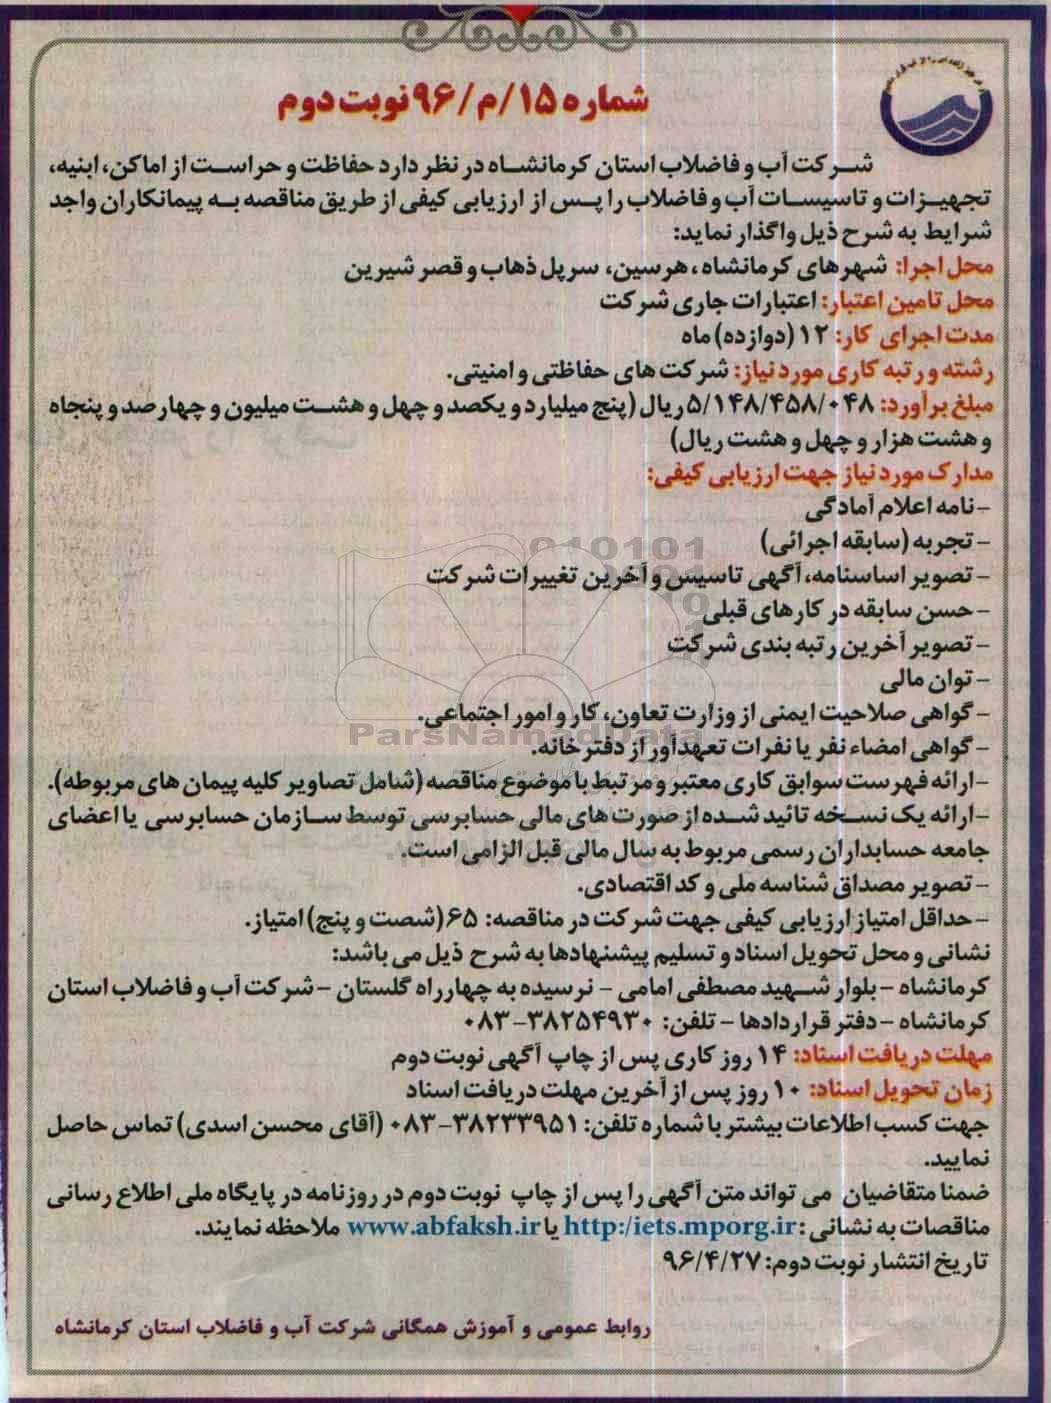 شماره ۱۵/م/۹۶ نوبت دوم
شرکت آب و فاضلاب استان کرمانشاه در نظر دارد حفاظت و حراست از اماکن، ابنیه،
تجهیزات و تاسیسات آب و فاضلاب را پس از ارزیابی کیفی از طریق مناقصه به پیمانکاران واجد
شرایط به شرح ذیل واگذار نماید:
محل اجرا: شهرهای کرمانشاه، هرسین، سرپل ذهاب و قصر شیرین
محل تامین اعتبار: اعتبارات جاری شرکت
مدت اجرای کار: ۱۲ (دوازده) ماه
رشته و رتبه کاری مورد نیاز: شرکت های حفاظتی و امنیتی.
مبلغ برآورد: ۵/۱۴۸/۴۵۸/۰۴۸ ریال (پنج میلیارد و یکصد و چهل و هشت میلیون و چهارصد و پنجاه
و هشت هزار و چهل و هشت ریال)
مدارک مورد نیاز جهت ارزیابی کیفی:
- نامه اعلام آمادگی
- تجربه (سابقه اجرائی)
- تصویر اساسنامه، آگهی تاسیس و آخرین تغییرات شرکت
- حسن سابقه در کارهای قبلی
- تصویر آخرین رتبه بندی شرکت
- توان مالی
- گواهی صلاحیت ایمنی از وزارت تعاون، کار و امور اجتماعی.
ParsNamadData
- گواهی امضاء نفر یا نفرات تعهدآور از دفترخانه.
- ارائه فهرست سوابق کاری معتبر و مرتبط با موضوع مناقصه (شامل تصاویر کلیه پیمان های مربوطه).
- ارائه یک نسخه تائید شده از صورت های مالی حسابرسی توسط سازمان حسابرسی یا اعضای
جامعه حسابداران رسمی مربوط به سال مالی قبل الزامی است.
- تصویر مصداق شناسه ملی و کد اقتصادی.
- حداقل امتیاز ارزیابی کیفی جهت شرکت در مناقصه: ۶۵ (شصت و پنج) امتیاز.
نشانی و محل تحویل اسناد و تسلیم پیشنهادها به شرح ذیل می باشد:
کرمانشاه - بلوار شهید مصطفی امامی - نرسیده به چهارراه گلستان - شرکت آب و فاضلاب استان
کرمانشاه - دفتر قراردادها - تلفن: ۳۸۲۵۴۹۳۰-۰۸۳
مهلت دریافت اسناد: ۱۴ روز کاری پس از چاپ آگهی نوبت دوم
زمان تحویل اسناد: ۱۰ روز پس از آخرین مهلت دریافت اسناد
جهت کسب اطلاعات بیشتر با شماره تلفن: ۳۸۲۳۳۹۵۱-۰۸۳ (آقای محسن اسدی) تماس حاصل
نمایید.
ضمنا متقاضیان می تواند متن آگهی را پس از چاپ نوبت دوم در روزنامه در پایگاه ملی اطلاع رسانی
مناقصات به نشانی: http:/iets.mporg.ir یا www.abfaksh.ir ملاحظه نمایند.
تاریخ انتشار نوبت دوم: ۹۶/۴/۲۷
روابط عمومی و آموزش همگانی شرکت آب و فاضلاب استان کرمانشاه